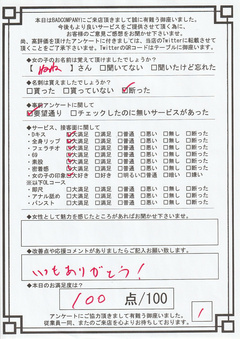 本日はBADCOMPANYにご来店頂きまして誠に有難う御座いました。
今後もより良いサービスをご提供させて頂く為に、
お客様のご意見ご感想をお聞かせ下さいませ。
尚、高評価を頂けたアンケートに付きましては、当店のTwitterに転載させて
頂くことをご了承下さいませ。TwitterのQRコードはテーブルに御座います。
◆女の子のお名前は覚えて頂けましたでしょうか?
【 】さん □聞いてない □聞いたけど忘れた
◆名刺は貰えましたでしょうか?
□貰った □貰っていない □断った
◆事前アンケートに関して
□要望通り □チェックしたのに無いサービスがあった
◆サービス、接客面に関して
・Dキス □大満足 □満足 □普通 □悪い □無し □断った
・全身リップ □大満足 □満足 □普通 □悪い □無し □断った
・フェラチオ □大満足 □満足 □普通 □悪い □無し □断った
・69 □大満足 □満足 □普通 □悪い □無し □断った
・素股 □大満足 □満足 □普通 □悪い □無し □断った
・密着感 □大満足 □満足 □普通 □悪い □無し □断った
・女の子の印象 □大好き □好き □明るい □普通 □嫌い □暗い
※以下OLコース
・即尺 □大満足 □満足 □普通 □悪い □無し □断った
・アナル舐め □大満足 □満足 □普通 □悪い □無し □断った
・パンスト □大満足 □満足 □普通 □悪い □無し □断った
◆女性として魅力を感じたところがあればお聞かせ下さいませ。
◆改善点や応援コメントがありましたらご記入お願い致します。
いつもありがとう!
◆本日のお満足度は?
100 点/100
アンケートにご協力頂きまして有難う御座いました。
従業員一同、またのご来店を心よりお待ちしております。